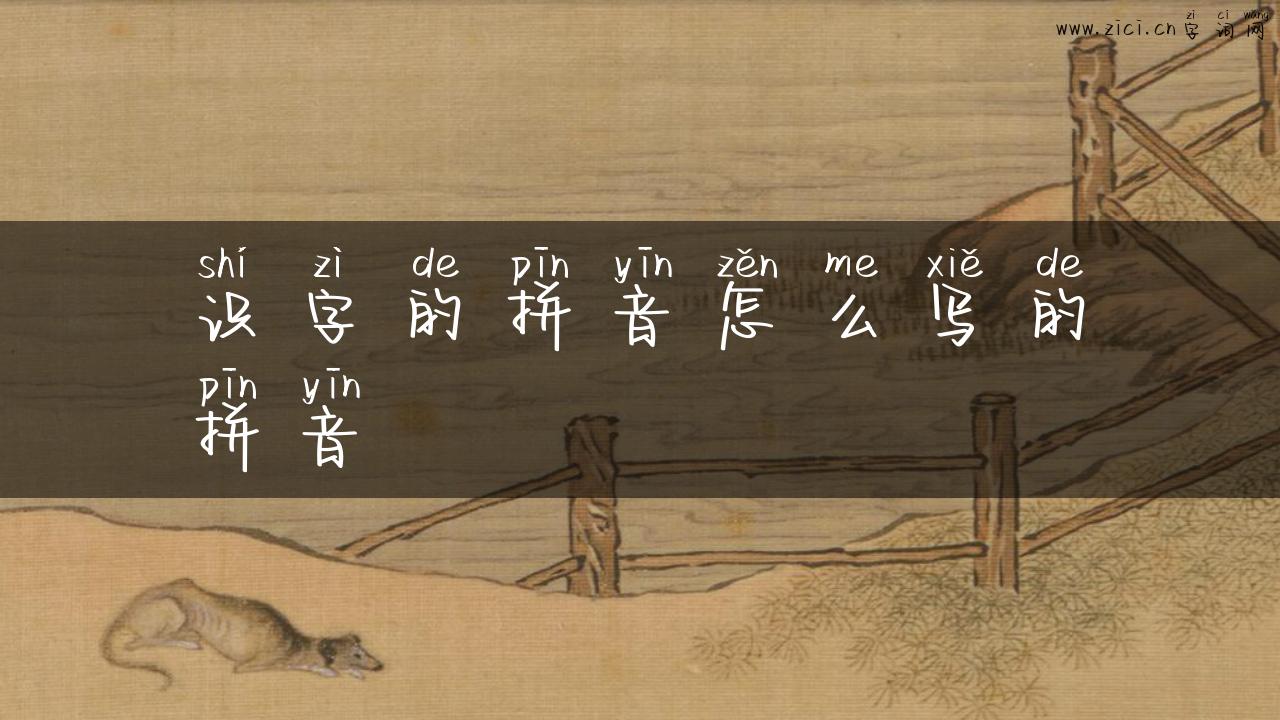 zì cí wǎng
www.zici.cn字词网
shí zì de pīn yīn zěn me xiě de
识字的拼音怎么写的
pīn yīn
拼音